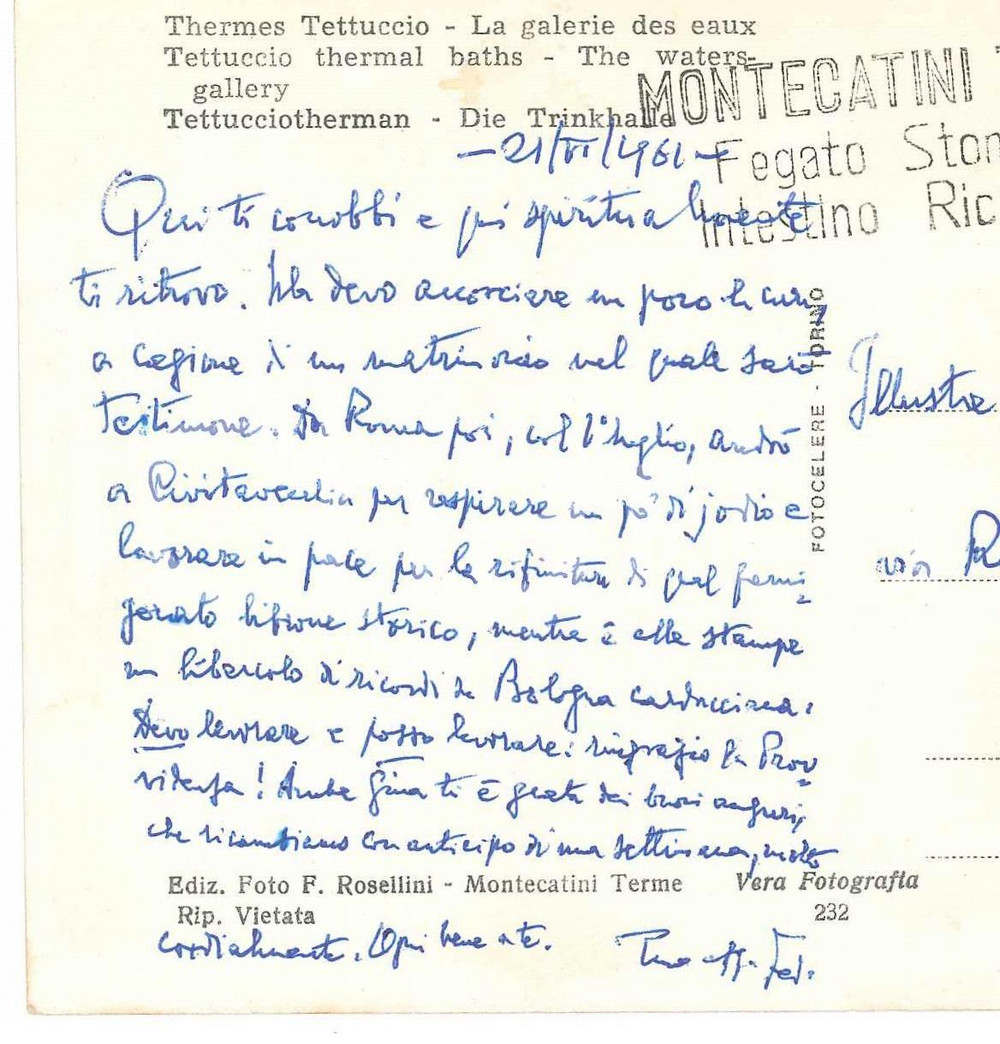 Thermes Tettuccio - La galerie des eaux
Tettuccio thermal baths - The waters-
gallery
Tettucciotherman - Die Trinkhalle
MONTECATINI T
Fegato Stom
Intestino Ric
-21/VI/1961-
Qui ti conobbi e più spiritualmente
ti ritrovo. Ma devo accorciare un poco la cura,
a cagione di un matrimonio nel quale sarò
testimone. Da Roma poi, col 1° luglio, andrò
a Civitavecchia per respirare un po' di jodio e
lavorare in pace per la rifinitura di quel fami-
gerato librone storico, mentre è alle stampe
un libercolo di ricordi di Bologna carducciana.
Devo lavorare e posso lavorare: ringrazio la Prov-
videnza! Anche Gina ti è grata dei buoni auguri,
che ricambiamo con anticipo di una settimana, molto
cordialmente. Ogni bene a te. Tuo aff. Fed.
Ediz. Foto F. Rosellini - Montecatini Terme
Vera Fotografia
Rip. Vietata
232
FOTOCELERE - TORINO
Illustre
via R